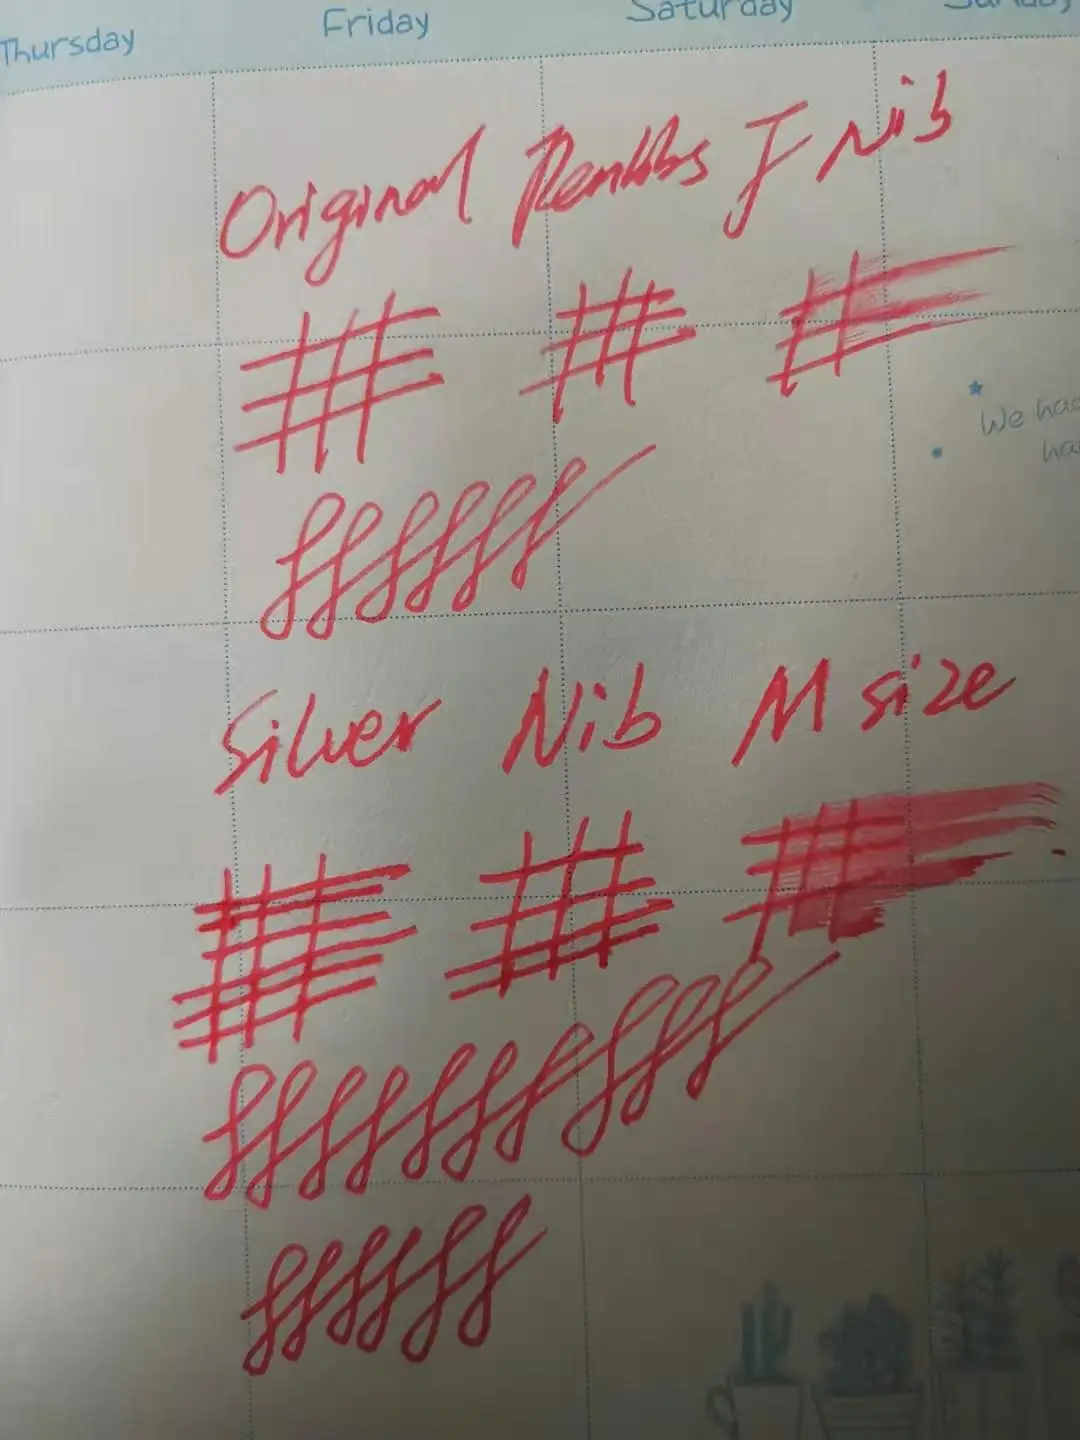 Thursday Friday Saturday Sunday
Original Renbbs F Nib
We
Silver Nib M size